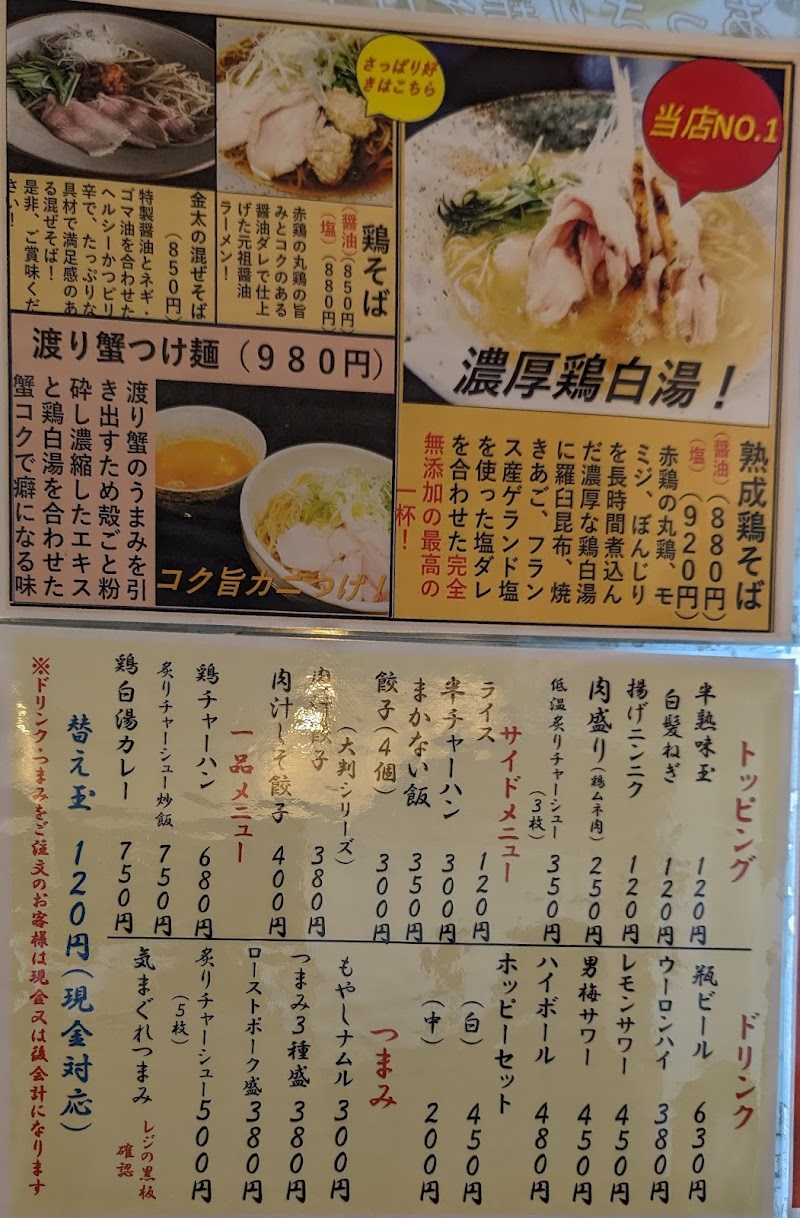 当店NO.1
濃厚鶏白湯！
熟成鶏そば
(醤油)(８８０円)
(塩)(９２０円)
赤鶏の丸鶏、モ
ミジ、ぼんじり
を長時間煮込ん
だ濃厚な鶏白湯
に羅臼昆布、焼
きあご、フラン
ス産ゲランド塩
を使った塩ダレ
を合わせた完全
無添加の最高の
一杯！
さっぱり好
きはこちら
鶏そば
(醤油)(８５０円)
(塩)(８８０円)
赤鶏の丸鶏の旨
みとコクのある
醤油ダレで仕上
げた元祖醤油
ラーメン！
金太の混ぜそば
(８５０円)
特製醤油とネギ・
ゴマ油を合わせた
ヘルシーかつピリ
辛で、たっぷりな
具材で満足感のあ
る混ぜそば！
是非、ご賞味くだ
さい！
渡り蟹つけ麺(９８０円)
コク旨カニつけ！
渡り蟹のうまみを引
き出すため殻ごと粉
砕し濃縮したエキス
と鶏白湯を合わせた
蟹コクで癖になる味
トッピング
半熟味玉 120円
白髪ねぎ 120円
揚げニンニク 120円
肉盛り(鶏ムネ肉) 250円
低温炙りチャーシュー(3枚) 350円
サイドメニュー
ライス 120円
半チャーハン 300円
まかない飯 350円
餃子(4個) 300円
(大判シリーズ)
肉汁餃子 380円
肉汁しそ餃子 400円
一品メニュー
鶏チャーハン 680円
炙りチャーシュー炒飯 750円
鶏白湯カレー 750円
替え玉 120円(現金対応)
※ドリンク・つまみをご注文のお客様は現金又は後会計になります
ドリンク
瓶ビール 630円
ウーロンハイ 380円
レモンサワー 450円
男梅サワー 450円
ハイボール 480円
ホッピーセット
(白) 450円
(中) 200円
つまみ
もやしナムル 300円
つまみ3種盛 380円
ローストポーク盛 380円
炙りチャーシュー 500円
(5枚)
気まぐれつまみ レジの黒板
確認